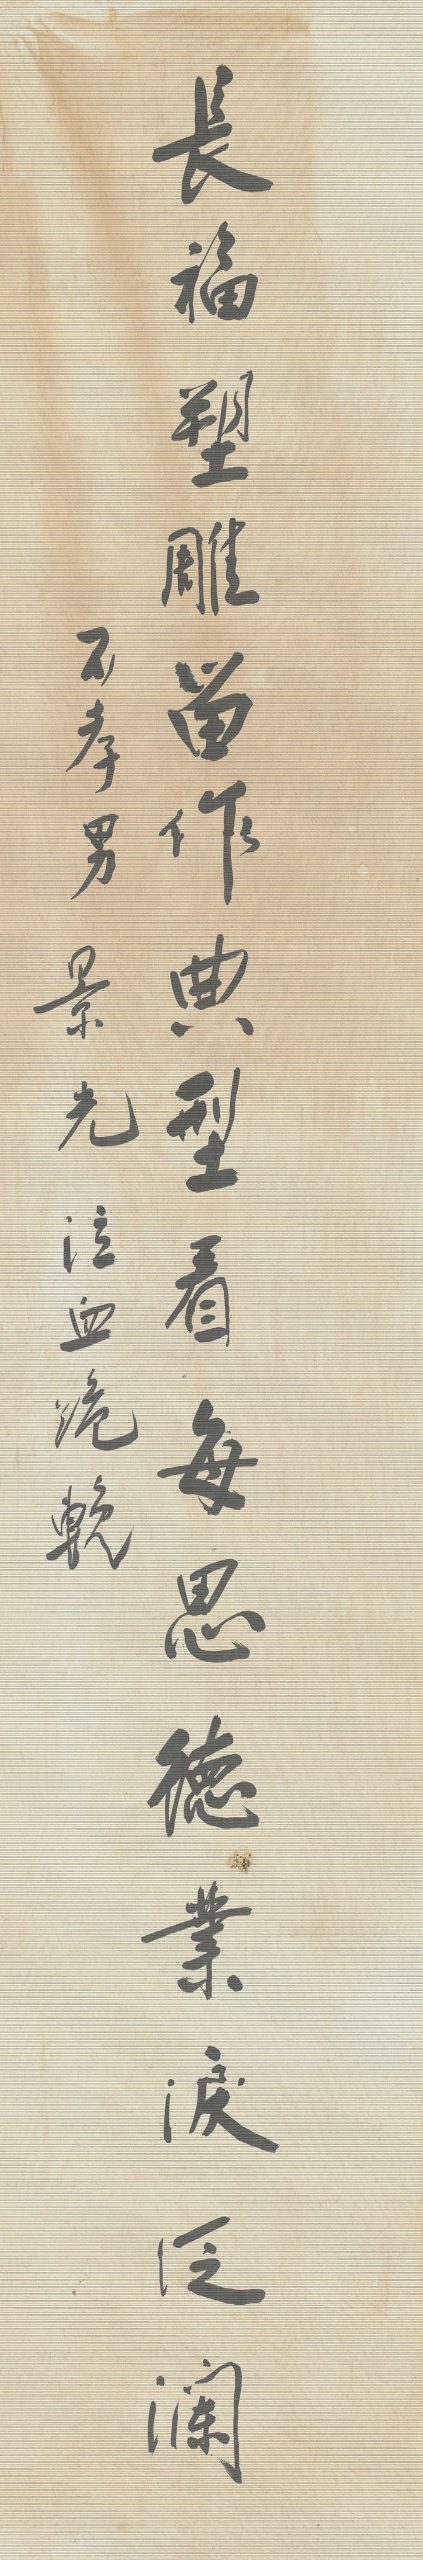 長福塑雕留作典型看每思德業淚泛瀾
不孝男 景光 泣血跪輓